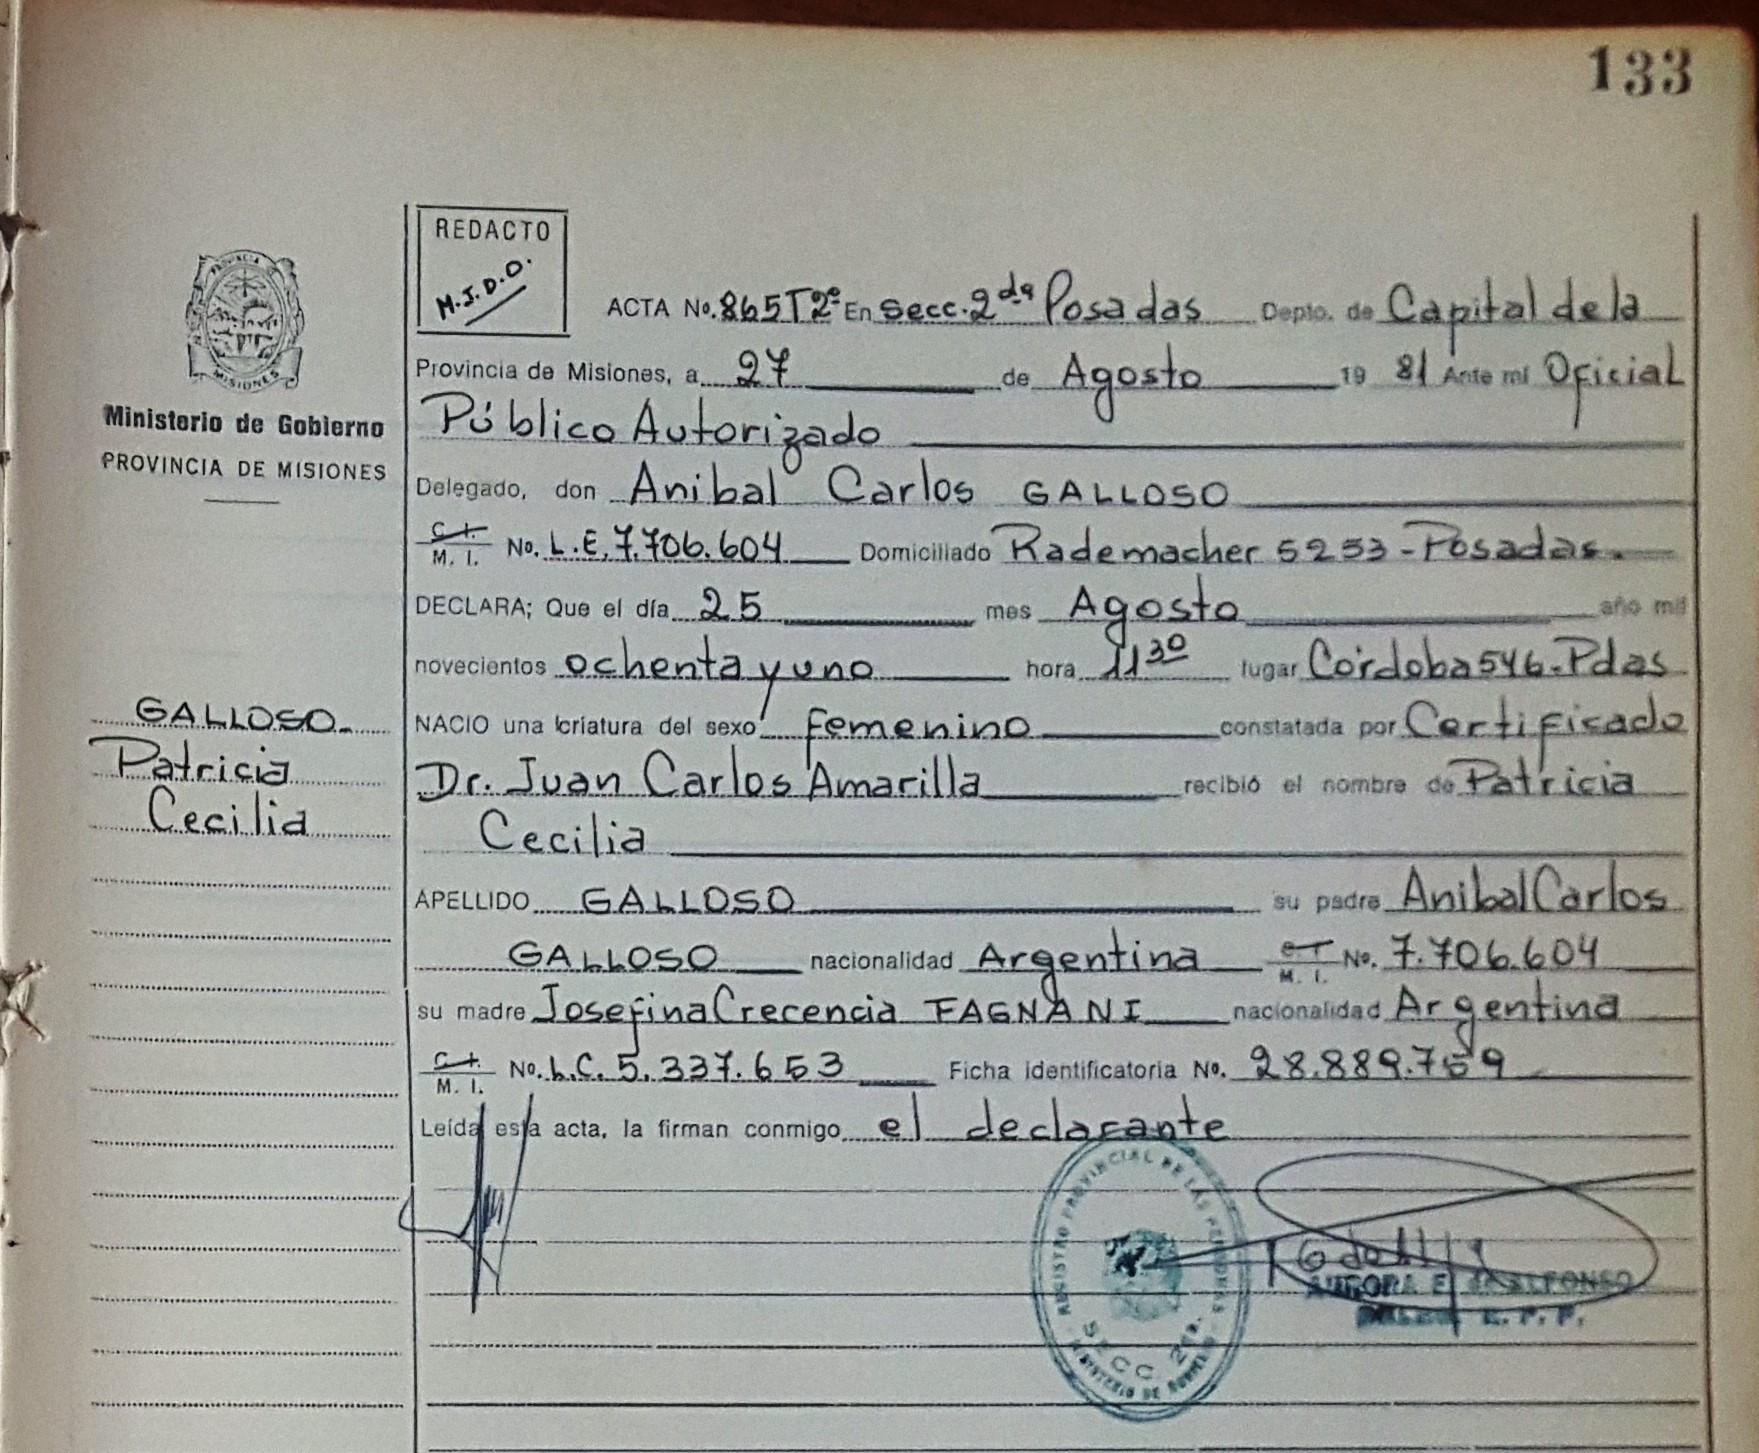 133
REDACTO
M.J.D.O.
PROVINCIA DE
MISIONES
Ministerio de Gobierno
PROVINCIA DE MISIONES
GALLOSO.
Patricia
Cecilia
ACTA No. 865T2º En Secc. 2da Posadas Depto. de Capital de la
Provincia de Misiones, a 27 de Agosto 19 81 Ante mí Oficial
Público Autorizado
Delegado, don Anibal Carlos GALLOSO
C.I. M. I. No. L.E. 7.706.604 Domiciliado Rademacher 5253-Posadas.
DECLARA; Que el día 25 mes Agosto año mil
novecientos ochenta y uno hora 11 30 lugar Córdoba 546-Pdas
NACIO una criatura del sexo femenino constatada por Certificado
Dr. Juan Carlos Amarilla recibió el nombre de Patricia
Cecilia
APELLIDO GALLOSO su padre Anibal Carlos
GALLOSO nacionalidad Argentina M. I. No. 7.706.604
su madre Josefina Crecencia FAGNANI nacionalidad Argentina
C.I. M. I. No. L.C. 5.337.653 Ficha identificatoria No. 28.889.759
Leída esta acta, la firman conmigo el declarante
REGISTRO PROVINCIAL DE LAS PERSONAS
SECC 2da.
MINISTERIO DE GOBIERNO
AURORA E.